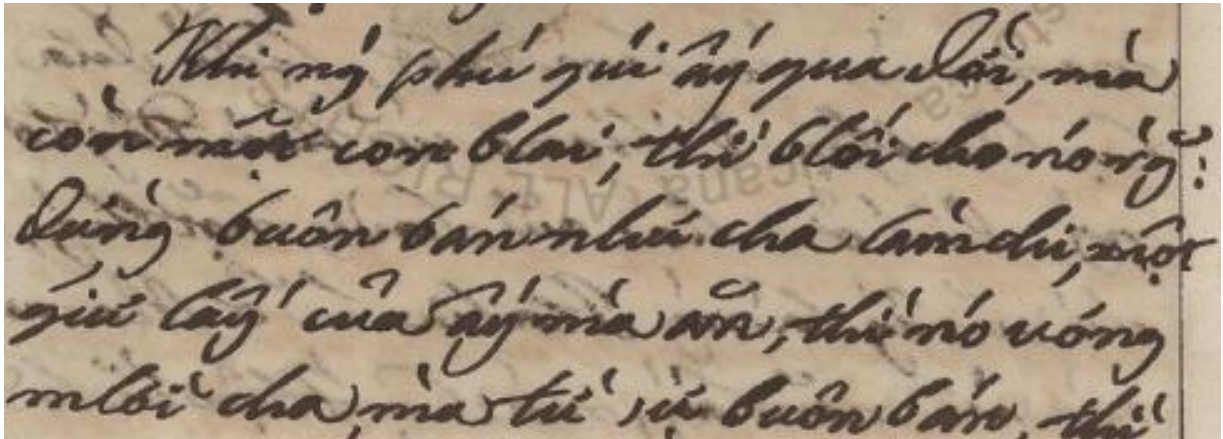 Khi ngͥ phú quí ấy qua đời, mà
còn một con blai, thì blối cho nó rằng:
đừng buôn bán như cha làm chi, một
giữ lấy của ấy mà ăn, thì nó vâng
mlời cha, mà từ sự buôn bán, thì